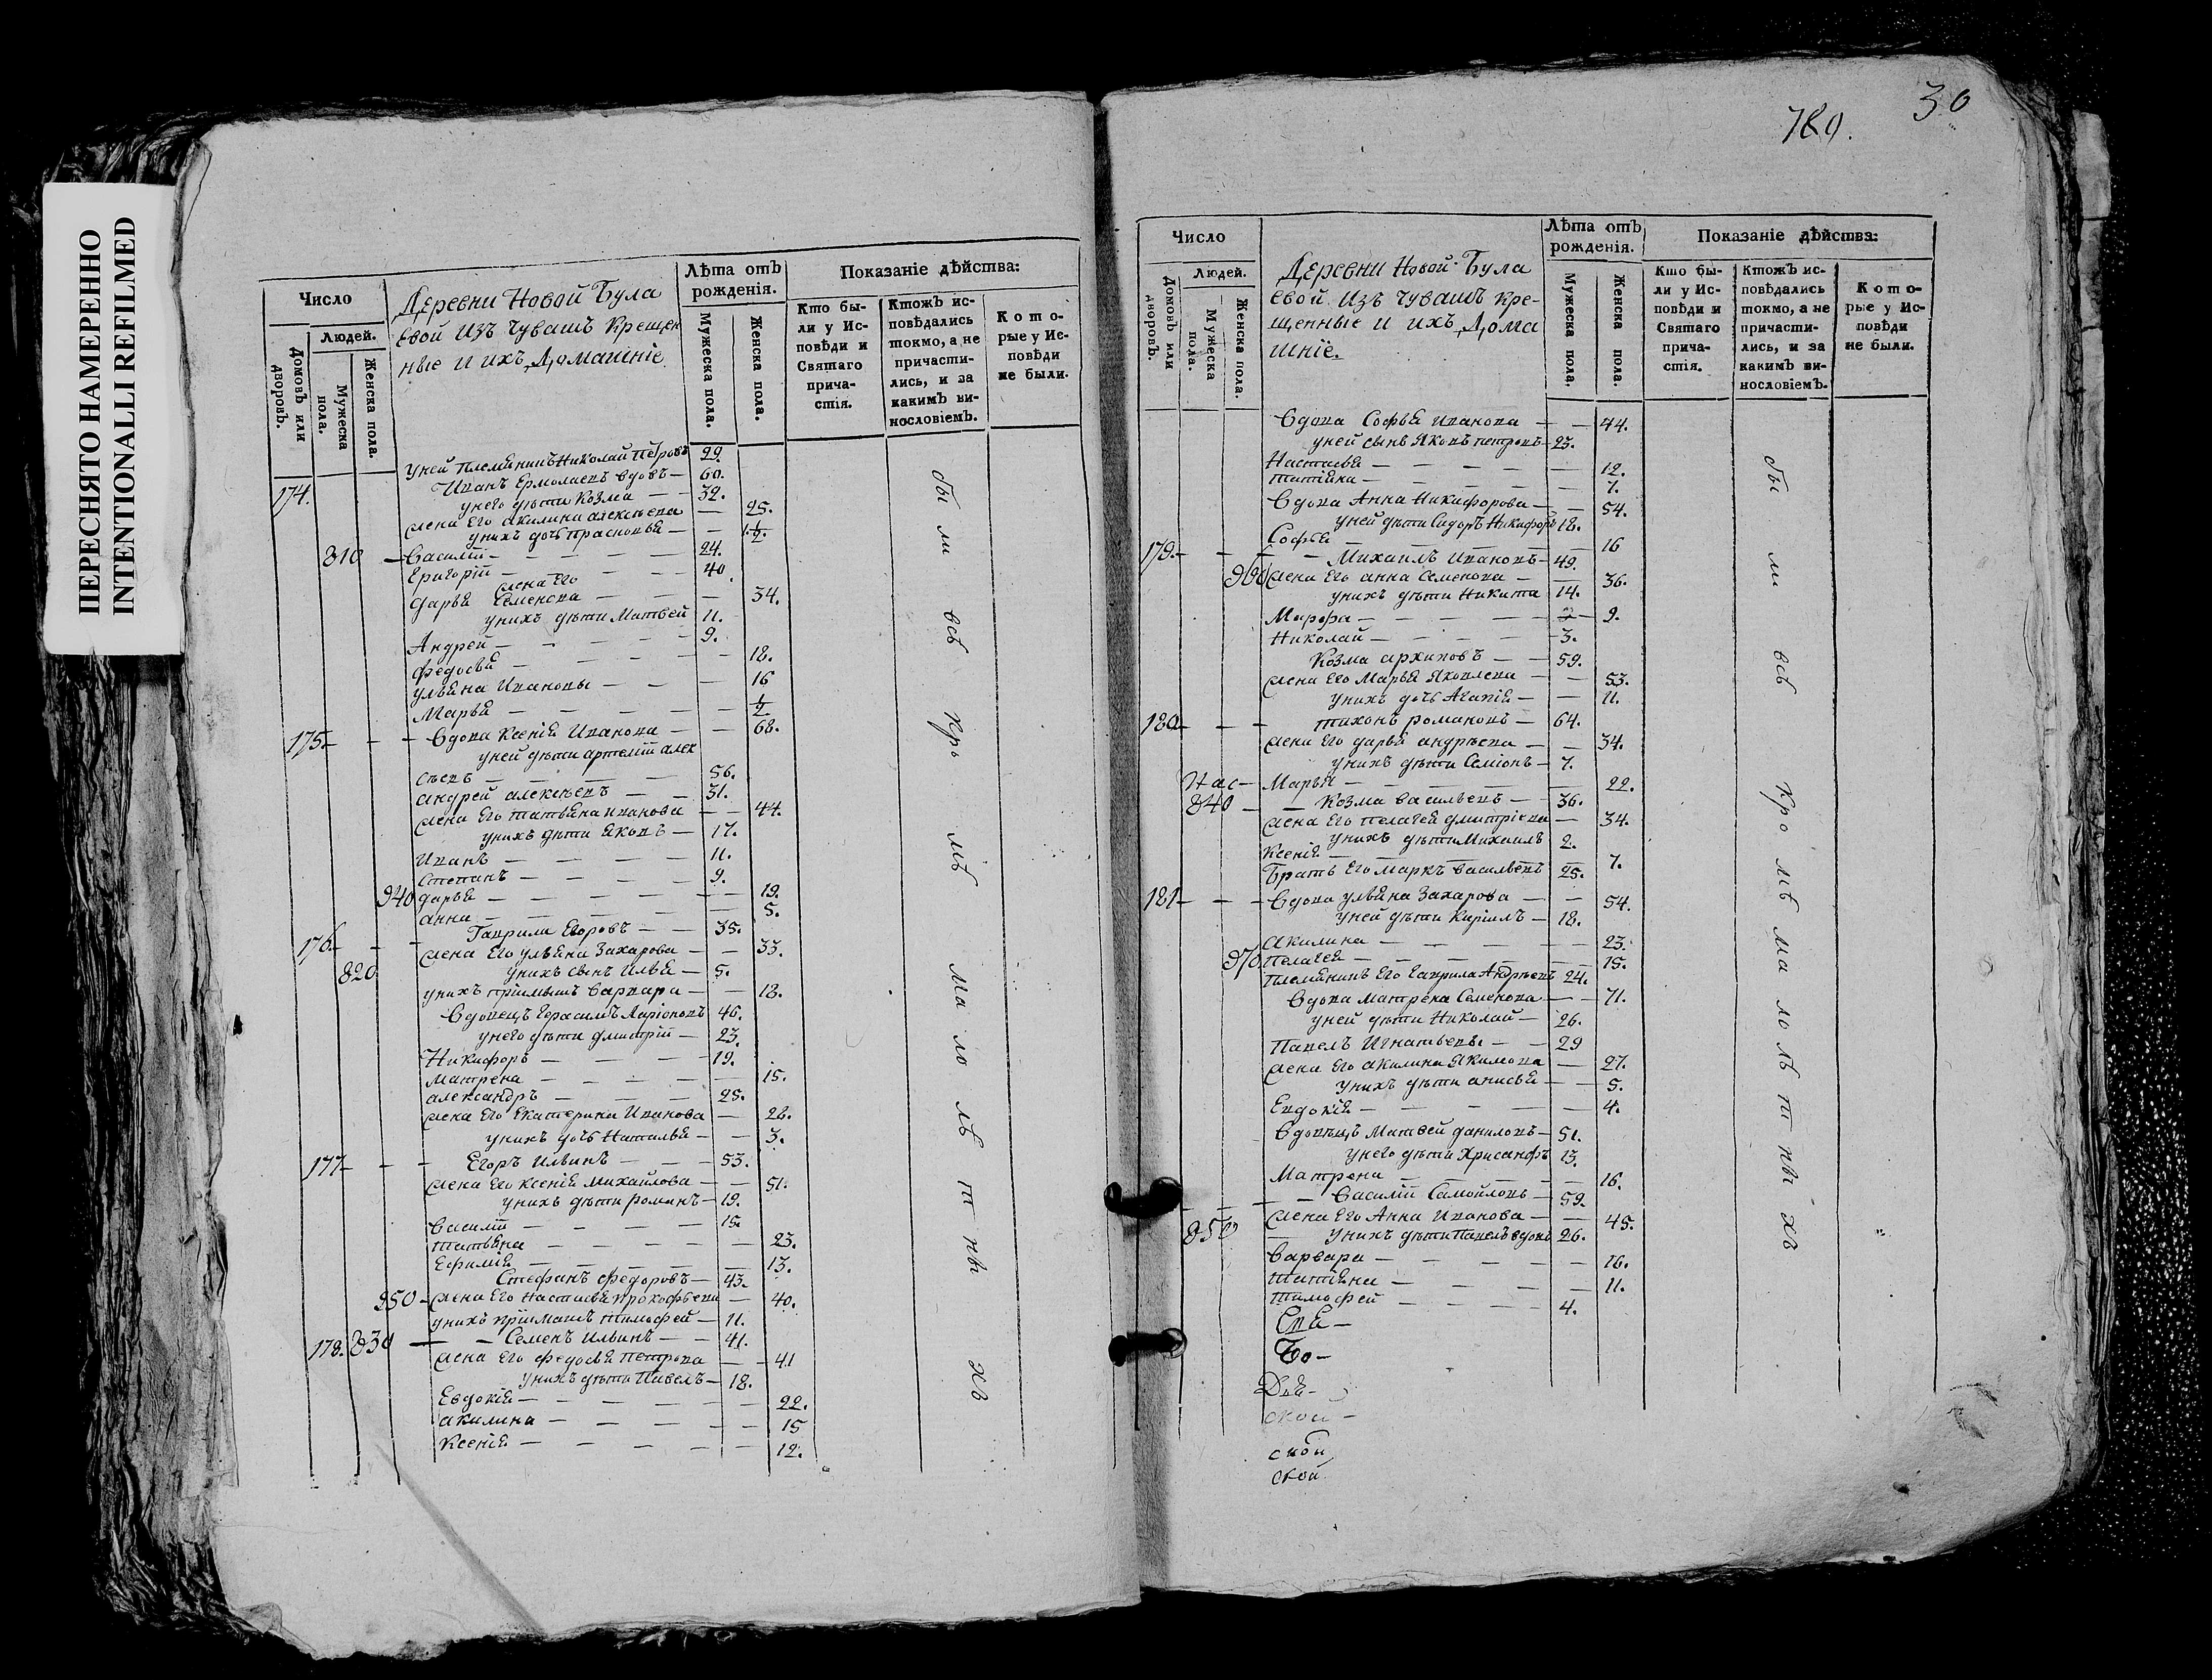 ПЕРЕСНЯТО НАМЕРЕННО
INTENTIONALLI REFILMED
Число
Людей.
Домовъ или дворовъ.
Мужеска пола.
Женска пола.
Деревни Новой Була
евой изъ Чувашъ Крещен
ные и ихъ Домашнiе
Лѣта отъ рожденiя.
Мужеска пола.
Женска пола.
Показанiе дѣйства:
Кто были у Исповѣди и Святаго причастiя.
Ктожъ исповѣдались токмо, а не причастились, и за какимъ винословiемъ.
Которые у Исповѣди не были.
уней племянникъ Николай Петровъ 29.
174. Иванъ Ермолаевъ вдовъ — 60.
унего дѣти Козма — — 32.
жена Его акилина алексѣева — 25.
унихъ дочь Прасковья — — 1 1/2.
810 — Василiй — — — — 24.
Григорiй — — — — 40.
жена Его
дарья Семенова — — — 34.
унихъ дѣти Матвей 11.
Андрей — — — — 9.
федосья — — — — 18.
ульяна Ивановы — — — 16
Марья — — — — — 1/2
175 — — — Вдова Ксенiя Иванова — — 68.
уней дѣти артемiй алек
сѣевъ — — — — 56.
андрей алексѣевъ — — 31.
жена Его татьяна иванова — — 44.
унихъ дѣти яковъ — 17.
Иванъ — — — — 11.
Степанъ — — — — 9.
940 дарья — — — — — 19.
анна — — — — — 5.
176 — — — Гаврила Егоровъ — — 35.
жена Его ульяна Захарова — — 33.
820 унихъ сынъ Илья — 5.
унихъ прiимышъ варвара — — 18.
Вдовецъ Герасимъ Ларiоновъ 46.
унего дѣти дмитрiй — 23.
Никифоръ — — — — 19.
матрена — — — — — 15.
александръ — — — — 25.
жена Его Екатерина Иванова — 28.
унихъ дочь Наталья — — 3.
177 — — — Егоръ Ильинъ — — — 53.
жена Его Ксенiя Михайлова — — 51.
унихъ дѣти романъ — 19.
василiй — — — — 15.
татьяна — — — — — 23.
Ефимiя — — — — — 13.
Стефанъ федоровъ — 43.
950 — жена Его Настасья прокофьева — 40.
унихъ прiимышъ тимофей — 11.
178. 830 — — Семенъ Ильинъ — — 41.
жена Его федосья петрова — — 41
унихъ дѣти Павелъ — 18.
Евдокiя — — — — — 22.
акилина — — — — — 15
Ксенiя — — — — — 12.
бы ли всѣ кро мѣ ма ло лѣ т ны хъ
789.
30
Число
Людей.
Домовъ или дворовъ.
Мужеска пола.
Женска пола.
Деревни Новой Була
евой изъ Чувашъ Кре-
щенные и ихъ Дома
шнiе.
Лѣта отъ рожденiя.
Мужеска пола.
Женска пола.
Показанiе дѣйства:
Кто были у Исповѣди и Святаго причастiя.
Ктожъ исповѣдались токмо, а не причастились, и за какимъ винословiемъ.
Которые у Исповѣди не были.
Вдова Софья Иванова — — 44.
уней сынъ Яковъ петровъ — 23.
Настасья — — — — — 12.
татiяна — — — — — 7.
Вдова Анна Никифорова — — 54.
уней дѣти Сидоръ Никифоръ 18.
Софья — — — — — 16
179 — — — Михаилъ Ивановъ — 49.
960 жена Его анна Семенова — — 36.
унихъ дѣти Никита 14.
Марфа — — — — — 9.
Николай — — — — 3.
Козма архиповъ — — 59.
жена Его Марья Яковлева — — 53.
унихъ дочь Агапiя — — 11.
180 — — — тихонъ романовъ — 64.
жена Его дарья андрѣева — — 34.
унихъ дѣти Семiонъ — 7.
Нас — Марья — — — — 22.
840 — — Козма васильевъ — — 36.
жена Его пелагея дмитрiева — 34.
унихъ дѣти Михаилъ 2.
Ксенiя — — — — — 7.
Братъ Его Маркъ васильевъ 25.
181 — — — Вдова ульяна Захарова — — 54.
уней дѣти Кирiилъ — 18.
Акилина — — — — — 23.
970 Пелагея — — — — — 15.
племянникъ Его Гаврила Андрѣевъ 24.
Вдова Матрена Семенова — — 71.
уней дѣти Николай — 26.
Павелъ Игнатьевы — — 29
жена Его акилина Якимова — 27.
унихъ дѣти анисья — — 5.
Евдокiя — — — — — 4.
Вдовецъ Матвей даниловъ — 51.
унего дѣти Хрисанфъ 13.
Матрена — — — — — 16.
— — — Василiй Самойловъ — 59.
850 жена Его Анна Иванова — — 45.
унихъ дѣти Павелъ вдовъ 26.
варвара — — — — — 16.
татiяна — — — — — 11.
тимофей — — — — 4.
Свя —
Бо —
ской —
ской
ской
бы ли всѣ кро мѣ ма ло лѣ т ны хъ